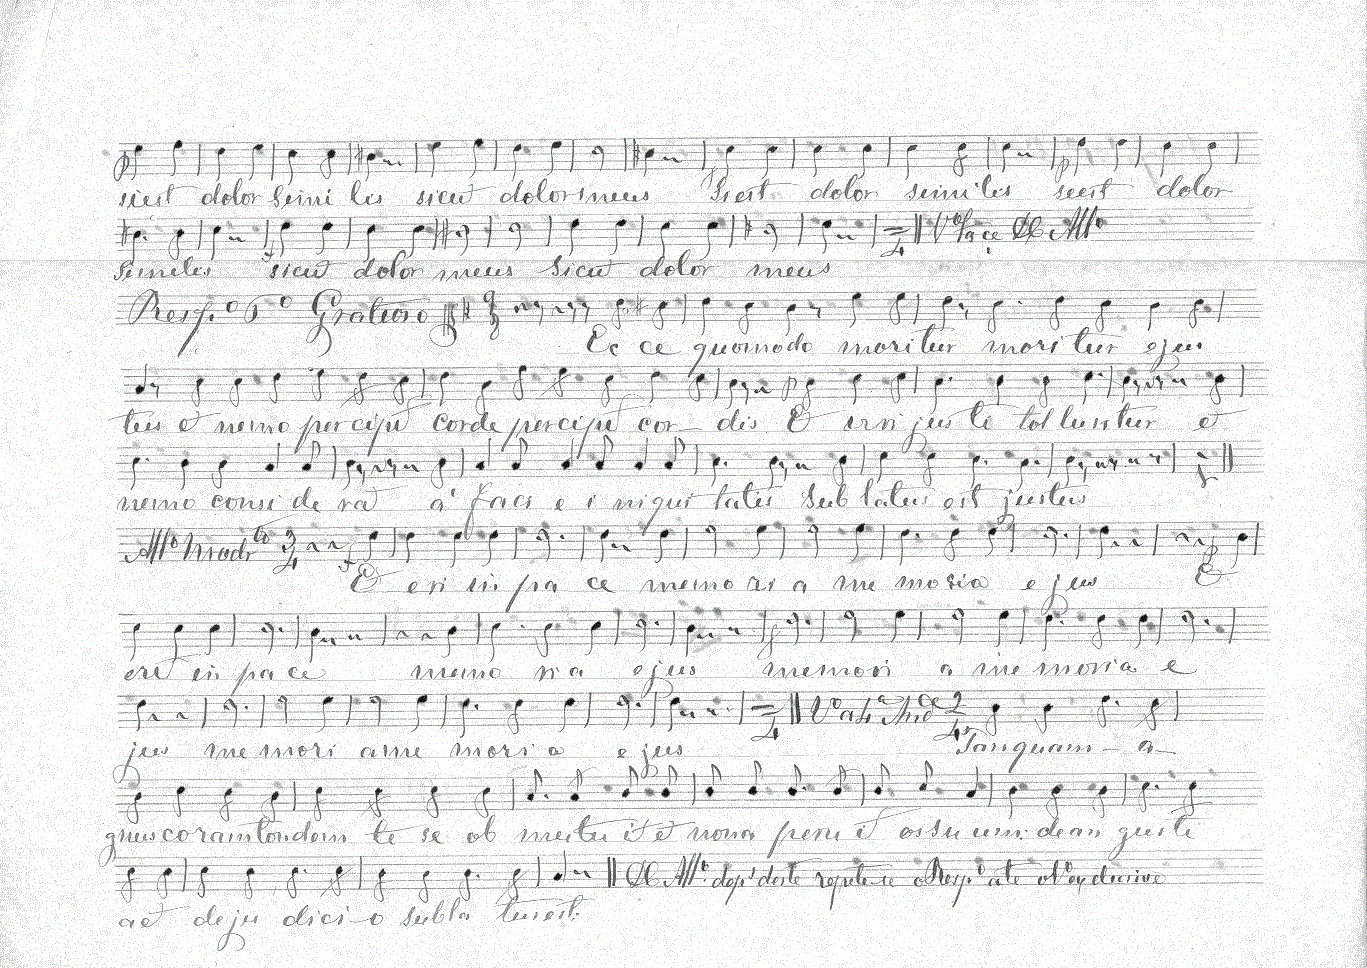 siest dolor simi lis sicut dolor meus siest dolor similis siest dolor
V.º face Al All.º
similis sicut dolor meus sicut dolor meus
Resp.º 6º Gratioso
Ec ce quomodo moritur moritur ejus
tus et nemo percipit corde percipit cor dis Et viri jus ti tolluntur et
nemo consi de rat a' faci e i niqui tatis sub latus est justus
All.º Modr.to 3/4
Et erit in pa ce memo ri a me moria ejus Et
erit in pa ce memo ria ejus memori a me moria e
V.º 2/4
jus me mori ame moria ejus Tanquam a
gnus coram tondem te se ob mutu it et non a peru it os su um: de an gusti
Al All.º dep.s deste repete-se o Resp.º ate o V.º exclusive
aet deju dici o subla tus est.